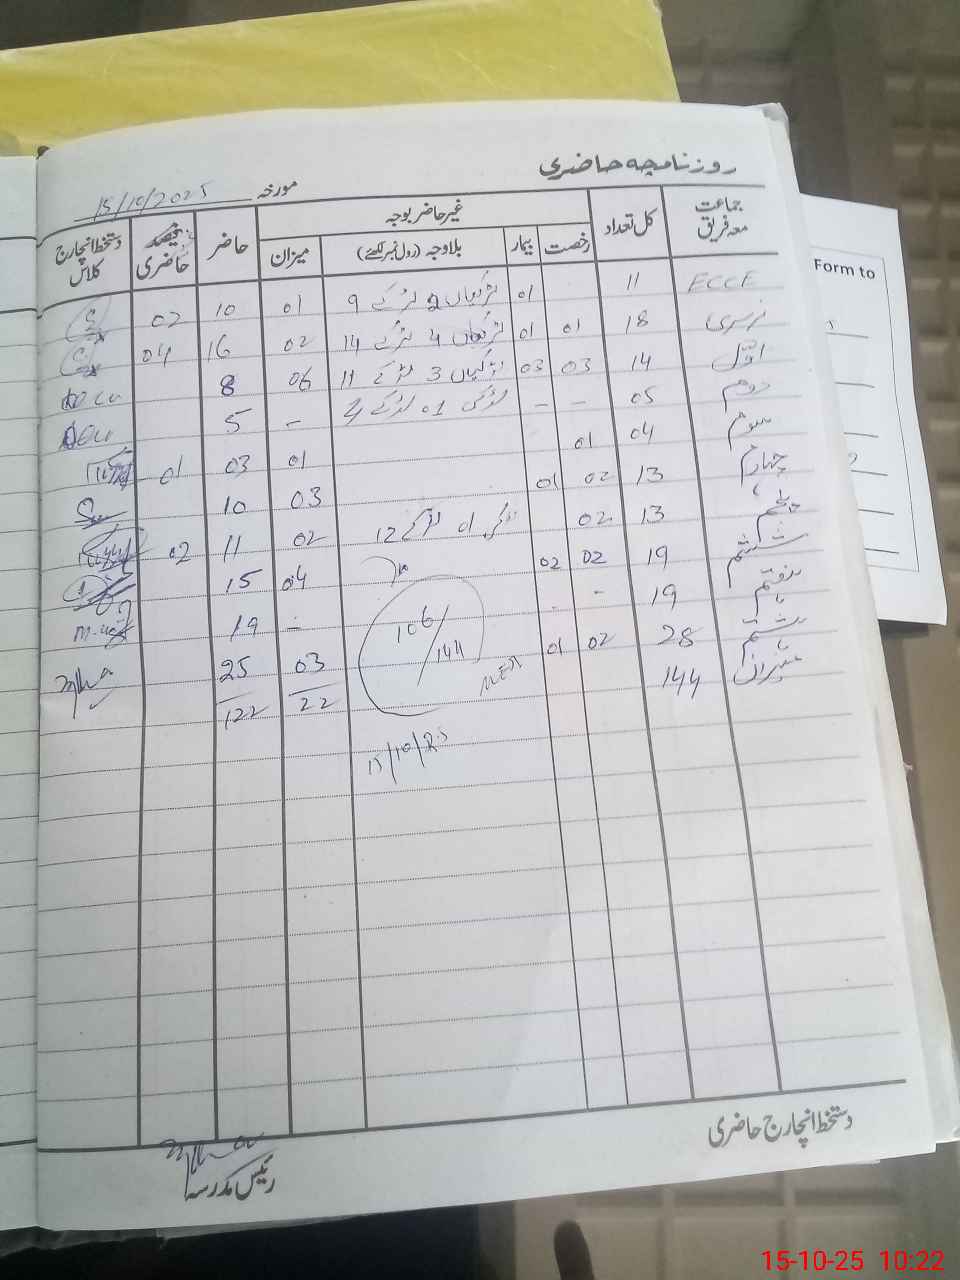 روزنامچہ حاضری
مورخہ 15/10/2025
جماعت معہ فریق کل تعداد غیر حاضر بوجہ حاضر فیصد حاضری دستخط انچارج کلاس
رخصت بیمار بلاوجہ (رول نمبر لکھئے) میزان
ECCE 11 01 لڑکیاں 2 لڑکے 9 01 10 02
نرسری 18 01 01 لڑکیاں 4 لڑکے 14 02 16 04
اوّل 14 03 03 لڑکیاں 3 لڑکے 11 06 8
دوم 05 - - لڑکی 01 لڑکے 4 - 5
سوم 04 01 01 03 01
چہارم 13 02 01 03 10
پنجم 13 02 لڑکی 01 لڑکے 12 02 11 02
ششم 19 02 02 04 15
ہفتم 19 - - - 19
ہشتم 28 02 01 03 25
میزان 144 22 122
106/144
15/10/25
دستخط انچارج حاضری
رئیس مدرسہ
Form to
15-10-25 10:22